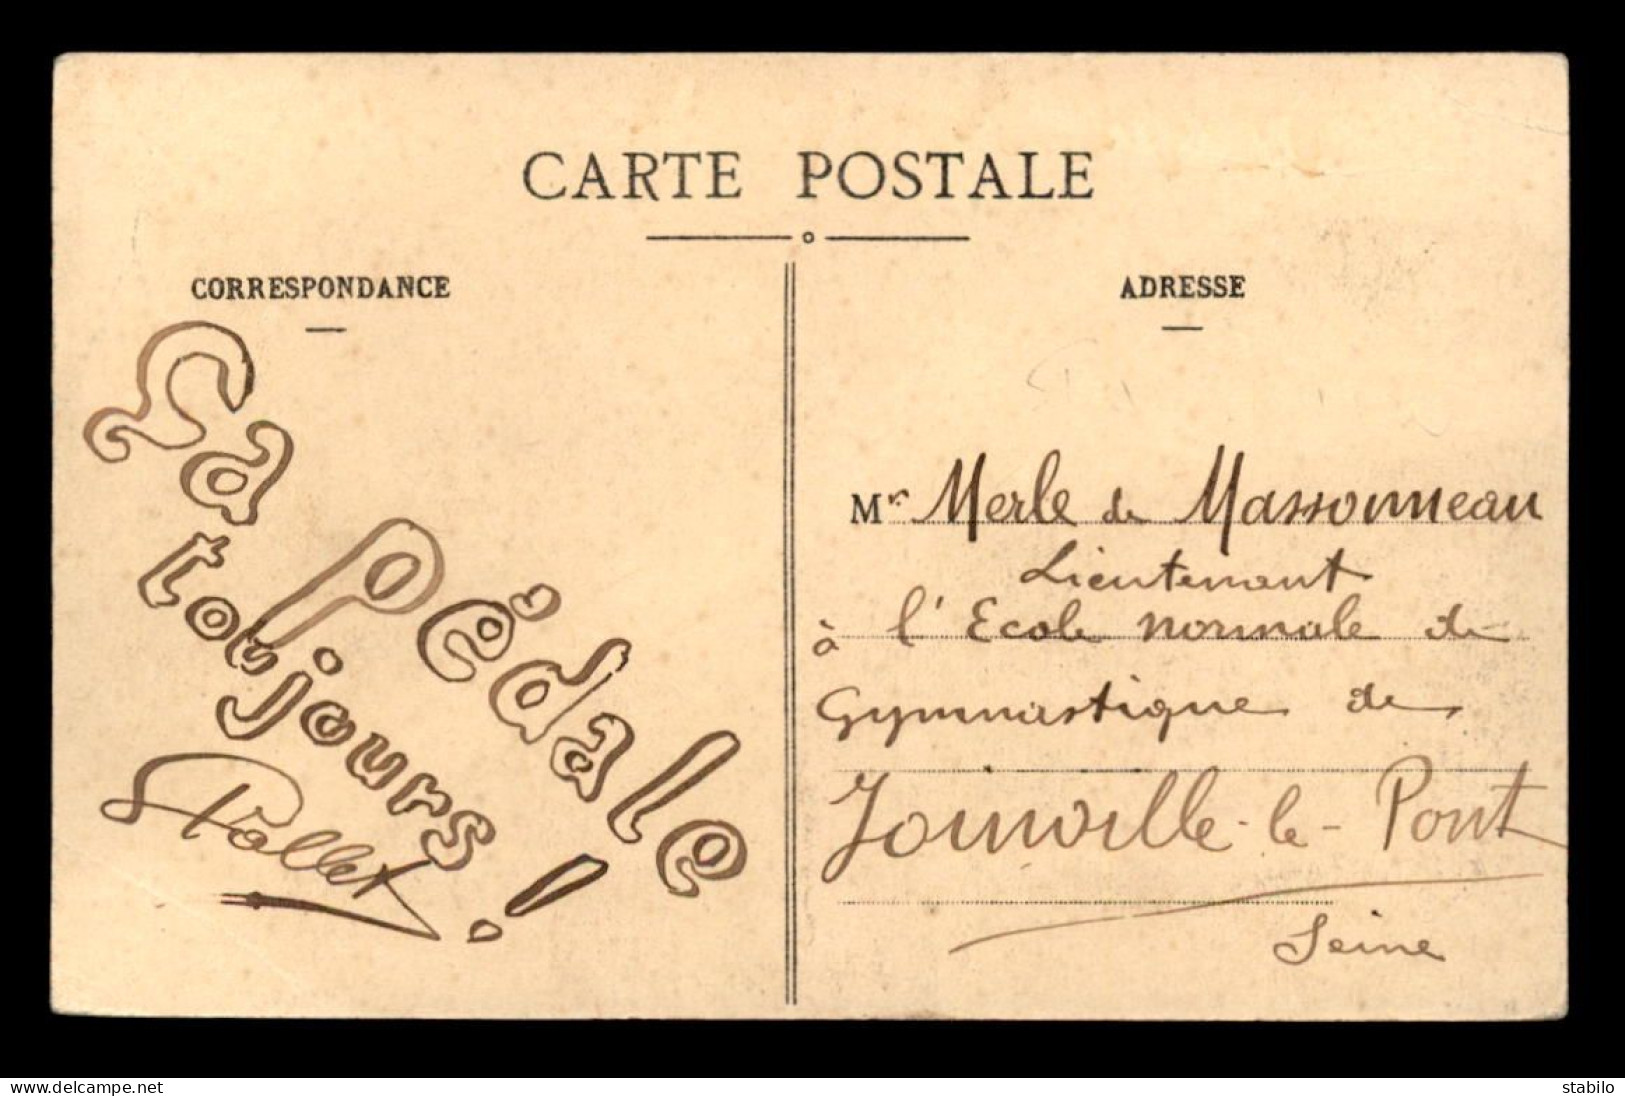 CARTE POSTALE
CORRESPONDANCE
Ça
Pédale
toujours !
Pallet
ADRESSE
Mr Merle de Massonneau
Lieutenant
à l'Ecole normale de
Gymnastique de
Joinville-le-Pont
Seine
www.delcampe.net
stabilo